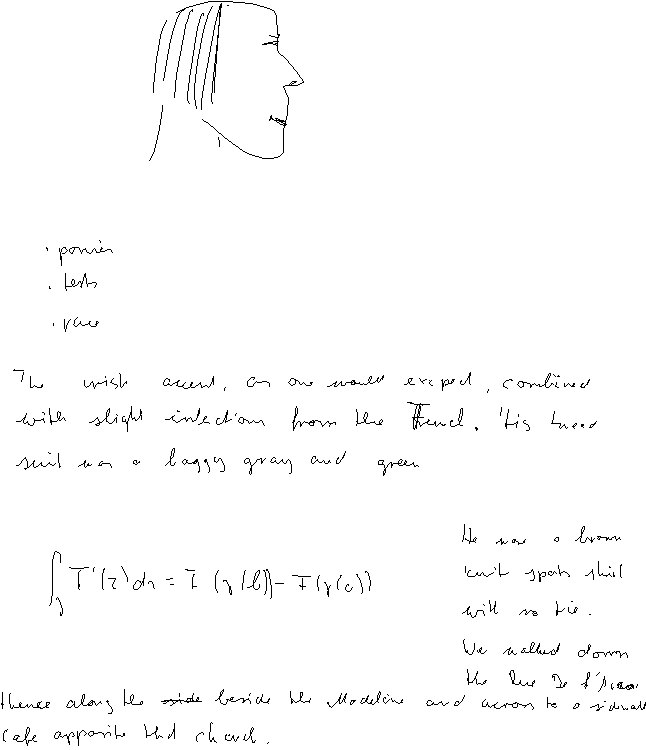 . tests
The Irish accent, as one would expect, combined
with slight inflections from the French. His tweed
suit was a baggy gray and green
∫_γ F'(z)dz = F(γ(b)) - F(γ(a))
He wore a brown
knit sports shirt
with no tie.
We walked down
the Rue De
thence along the side beside the Madeleine and across to a sidewalk
cafe opposite that church.